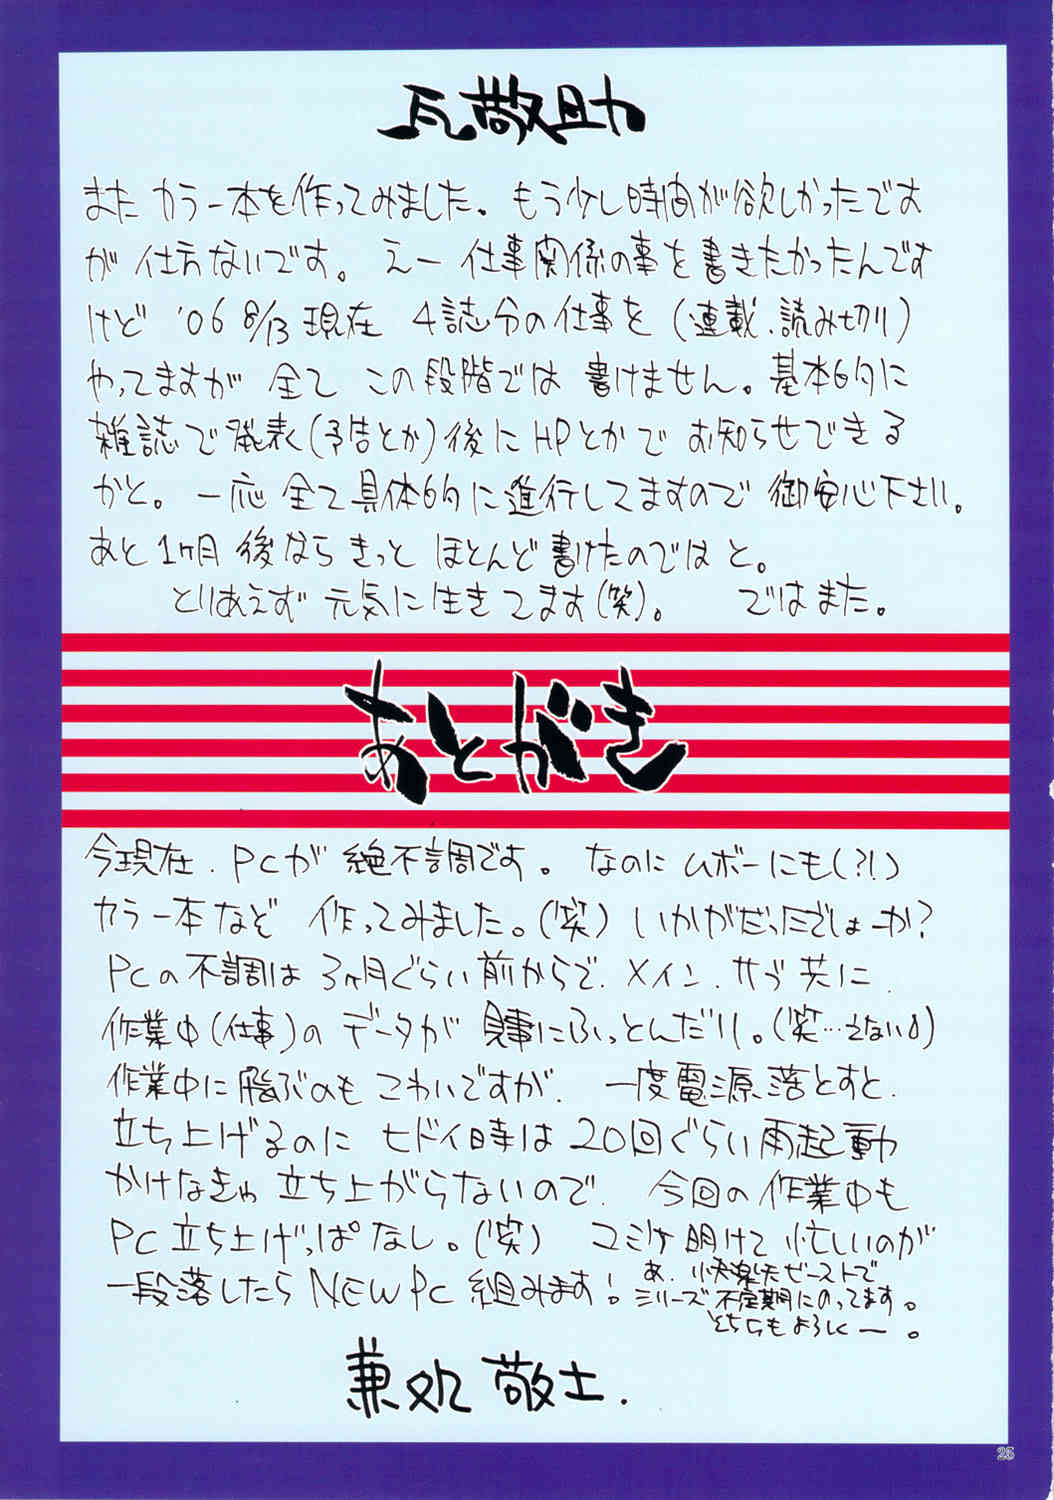 瓦敬助
また カラー本を作ってみました。もう少し時間が欲しかったです
が 仕方ないです。 えー 仕事関係の事を書きたかったんです
けど '06 8/13 現在 4誌分の仕事を (連載、読み切り)
やってますが 全て この段階では 書けません。基本的に
雑誌で発表(予告とか)後に HPとかで お知らせできる
かと。一応 全て具体的に進行してますので 御安心下さい。
あと 1ヶ月 後なら きっと ほとんど書けたのではと。
とりあえず 元気に生きてます(笑)。 ではまた。
あとがき
今現在、PCが 絶不調です。なのに ムボーにも(?!)
カラー本など 作ってみました。(笑) いかがだったでしょーか?
PCの不調は 3ヶ月ぐらい前からで、メイン、サブ共に、
作業中(仕事)の データが 見事にふっとんだり。(笑…えない)
作業中に飛ぶのも こわいですが、一度電源落とすと、
立ち上げるのに ヒドイ時は 20回ぐらい再起動
かけなきゃ 立ち上がらないので、今回の作業中も
PC立ち上げっぱなし。(笑) コミケ明けて 忙しいのが
一段落したら NEW PC 組みます!
あ、快楽天ビーストで
シリーズ 不定期にのってます。
そちらも よろしくー。
兼処 敬士.
25